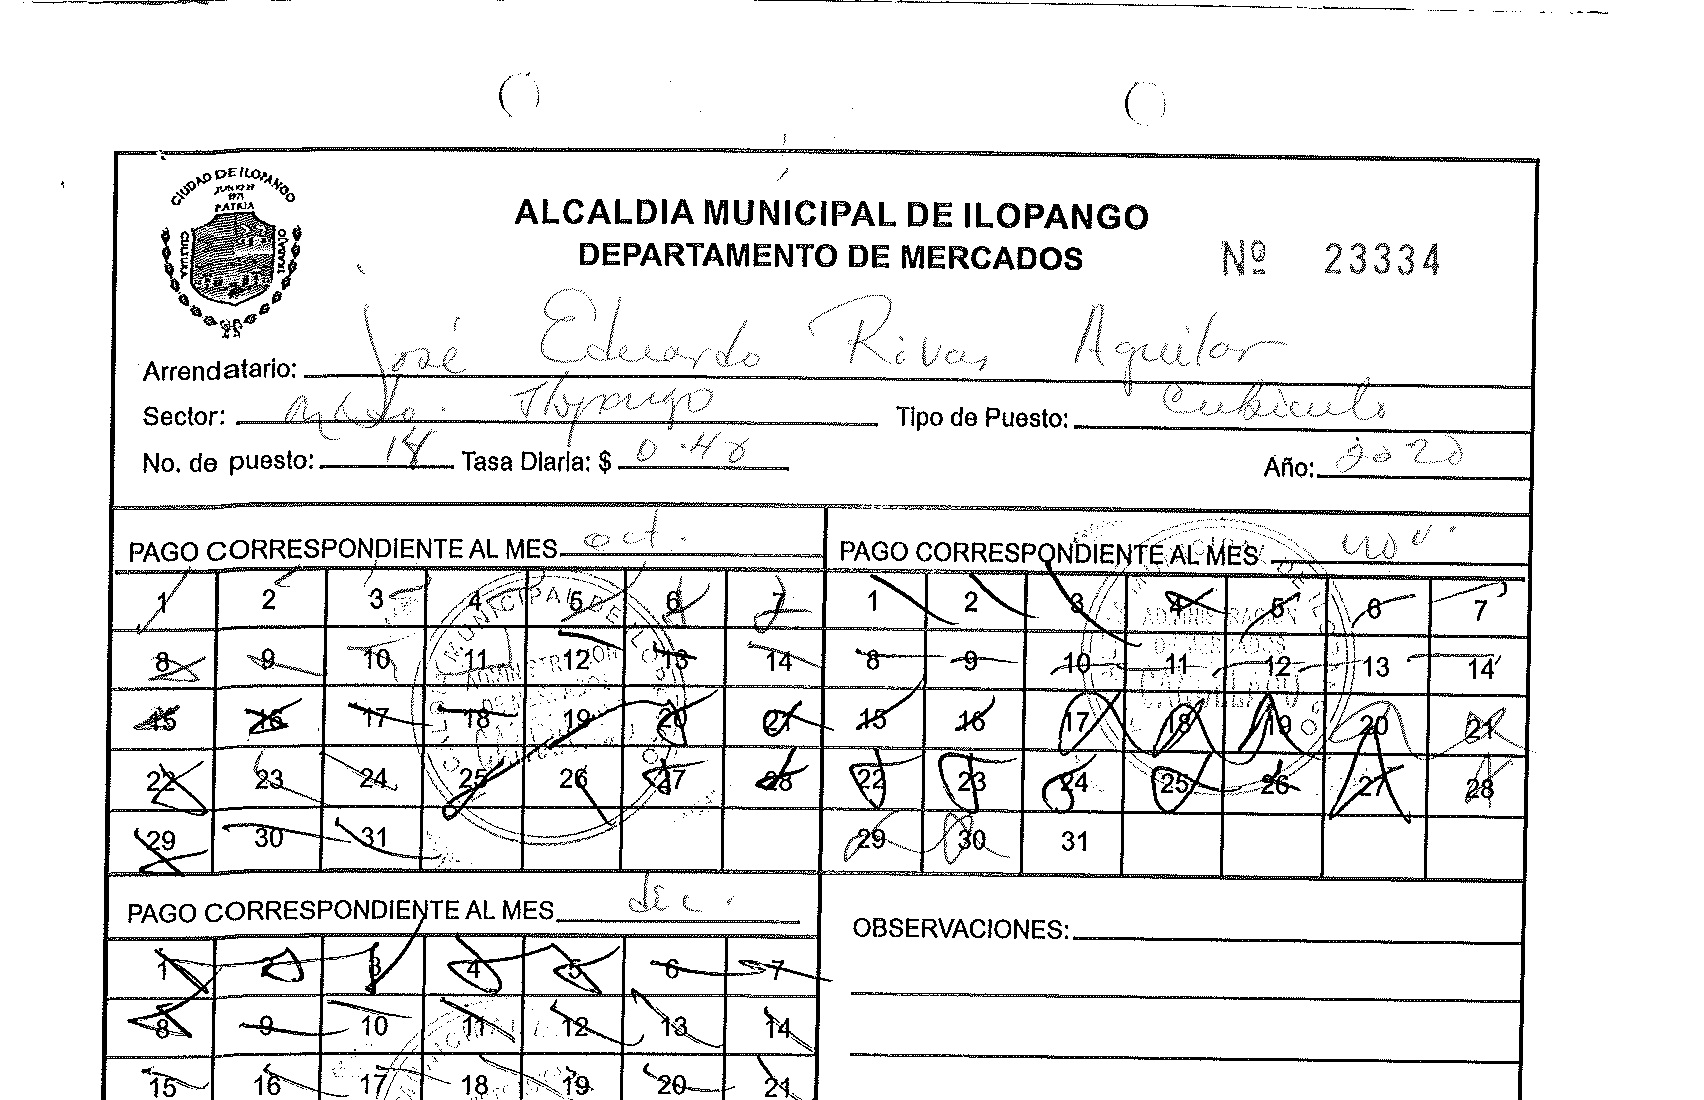 CIUDAD DE ILOPANGO
PATRIA
CULTURA
TRABAJO
ALCALDIA MUNICIPAL DE ILOPANGO
DEPARTAMENTO DE MERCADOS
Nº 23334
Arrendatario: José Eduardo Rivas Aguilar
Sector: Ilopango Tipo de Puesto: Cubiculo
No. de puesto: 14 Tasa Diaria: $ Año: 2020
PAGO CORRESPONDIENTE AL MES oct.
1 2 3 4 5 6 7
8 9 10 11 12 13 14
15 16 17 18 19 20 21
22 23 24 25 26 27 28
29 30 31
PAGO CORRESPONDIENTE AL MES nov.
1 2 3 4 5 6 7
8 9 10 11 12 13 14
15 16 17 18 19 20 21
22 23 24 25 26 27 28
29 30 31
PAGO CORRESPONDIENTE AL MES dec.
1 2 3 4 5 6 7
8 9 10 11 12 13 14
15 16 17 18 19 20 21
OBSERVACIONES: